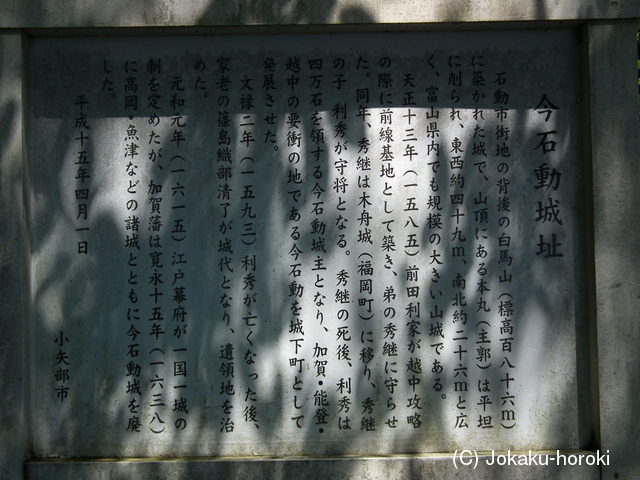 今石動城址
石動市街地の背後の白馬山(標高百八十六m)
に築かれた城で、山頂にある本丸(主郭)は平坦
に削られ、東西約四十九m、南北約二十六mと広
く、富山県内でも規模の大きい山城である。
天正十三年(一五八五)前田利家が越中攻略
の際に前線基地として築き、弟の秀継に守らせ
た。同年、秀継は木舟城(福岡町)に移り、秀継
の子 利秀が守将となる。秀継の死後、利秀は
四万石を領する今石動城主となり、加賀・能登・
越中の要衝の地である今石動を城下町として
発展させた。
文禄二年(一五九三)利秀が亡くなった後、
家老の篠島織部清了が城代となり、遺領地を治
めた。
元和元年(一六一五)江戸幕府が一国一城の
制を定めたが、加賀藩は寛永十五年(一六三八)
に高岡・魚津などの諸城とともに今石動城を廃
した。
平成十五年四月一日
小矢部市
(C) Jokaku-horoki